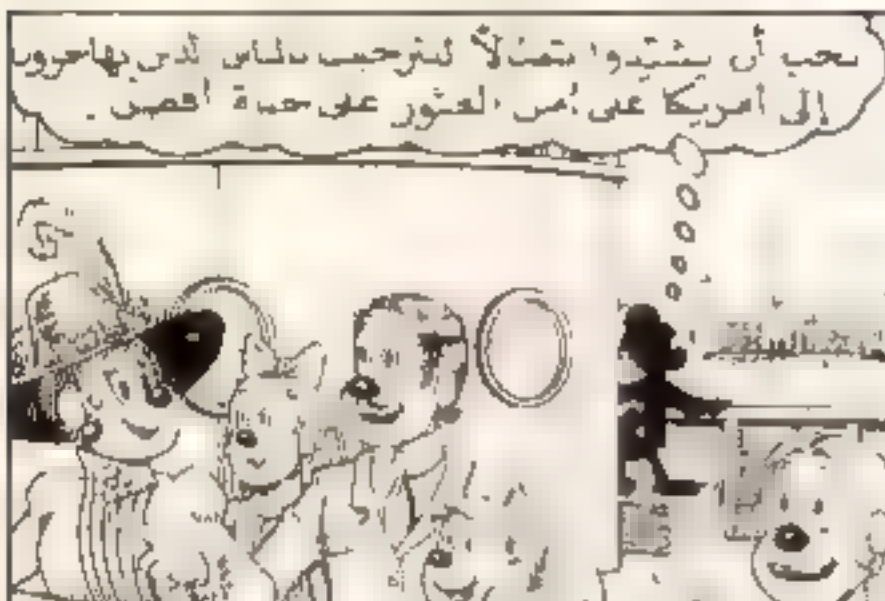 يجب أن يشيّدوا تمثالاً ليترحب بالناس الذين يهاجرون
إلى أمريكا على أمل العثور على حياة أفضل.